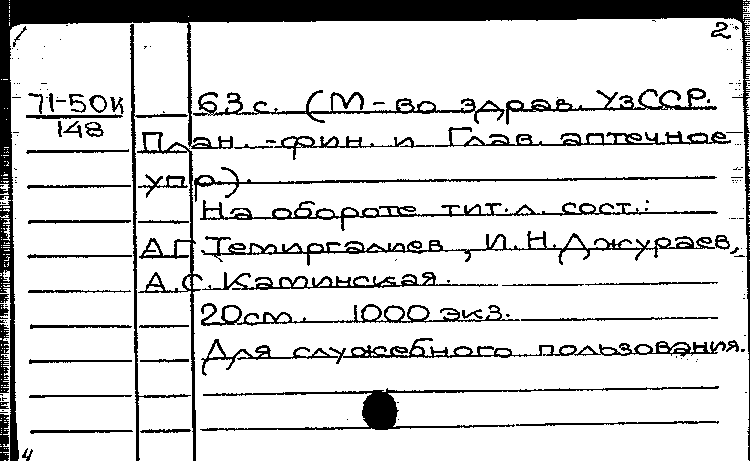 2
71-50к 63 с. (М-во здрав. УзССР.
148 План.-фин. и Глав. аптечное
упр).
На обороте тит.л. сост.:
А.Г.Темиргалиев, И.Н.Джураев,
А.С.Каминская.
20см. 1000 экз.
Для служебного пользования.
4